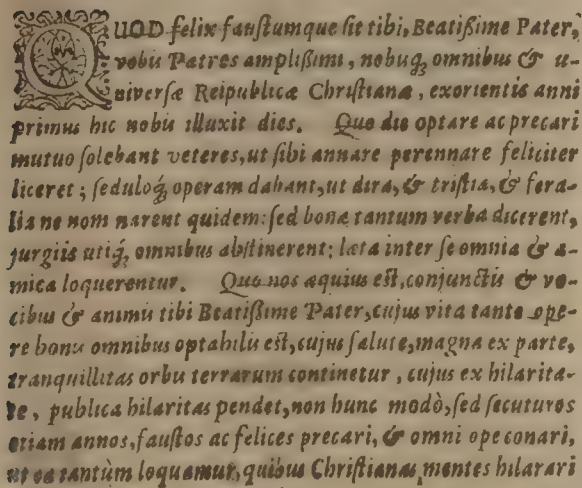 QUOD felix fauſtumque ſit tibi, Beatißime Pater,
vobis Patres amplißimi, nobiſq́; omnibus & u-
niverſæ Reipublicæ Chriſtianæ, exorientis anni
primus hic nobis illuxit dies. Quo die optare ac precari
mutuo ſolebant veteres, ut ſibi annare perennare feliciter
liceret; ſeduloq́; operam dabant, ut dira, & triſtia, & fera-
lia ne nominarent quidem: ſed bona tantum verba dicerent,
jurgiis utiq́; omnibus abſtinerent; læta inter ſe omnia & a-
mica loquerentur. Quo nos æquius eſt, conjunctis & vo-
cibus & animis tibi Beatißime Pater, cujus vita tanto ope-
re bonis omnibus optabilis eſt, cujus ſalute, magna ex parte,
tranquillitas orbis terrarum continetur, cujus ex hilarita-
te, publica hilaritas pendet, non hunc modò, ſed ſecuturos
etiam annos, fauſtos ac felices precari, & omni ope conari,
ut ea tantùm loquamur, quibus Chriſtianas mentes hilarari